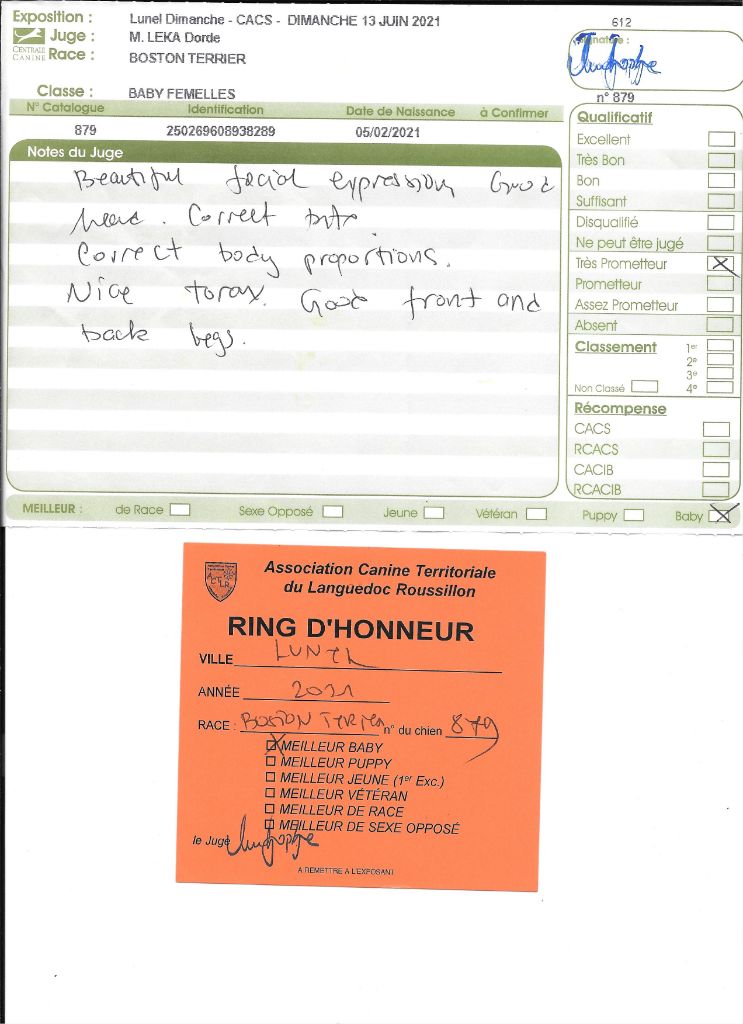 Exposition : Lunel Dimanche - CACS - DIMANCHE 13 JUIN 2021
612
Juge : M. LEKA Dorde
Signature :
CENTRALE CANINE
Race : BOSTON TERRIER
Classe : BABY FEMELLES
n° 879
N° Catalogue Identification Date de Naissance à Confirmer
879 250269608938289 05/02/2021
Notes du Juge
Beautiful facial expression Good
head. Correct bite.
Correct body proportions.
Nice torax. Good front and
back legs.
Qualificatif
Excellent
Très Bon
Bon
Suffisant
Disqualifié
Ne peut être jugé
Très Prometteur X
Prometteur
Assez Prometteur
Absent
Classement 1er
2e
3e
Non Classé 4e
Récompense
CACS
RCACS
CACIB
RCACIB
MEILLEUR : de Race Sexe Opposé Jeune Vétéran Puppy Baby X
Association Canine Territoriale
du Languedoc Roussillon
ACTLR
RING D'HONNEUR
VILLE LUNEL
ANNÉE 2021
RACE : BOSTON TERRIER n° du chien 879
X MEILLEUR BABY
MEILLEUR PUPPY
MEILLEUR JEUNE (1er Exc.)
MEILLEUR VÉTÉRAN
MEILLEUR DE RACE
MEILLEUR DE SEXE OPPOSÉ
le Juge
A REMETTRE A L'EXPOSANT